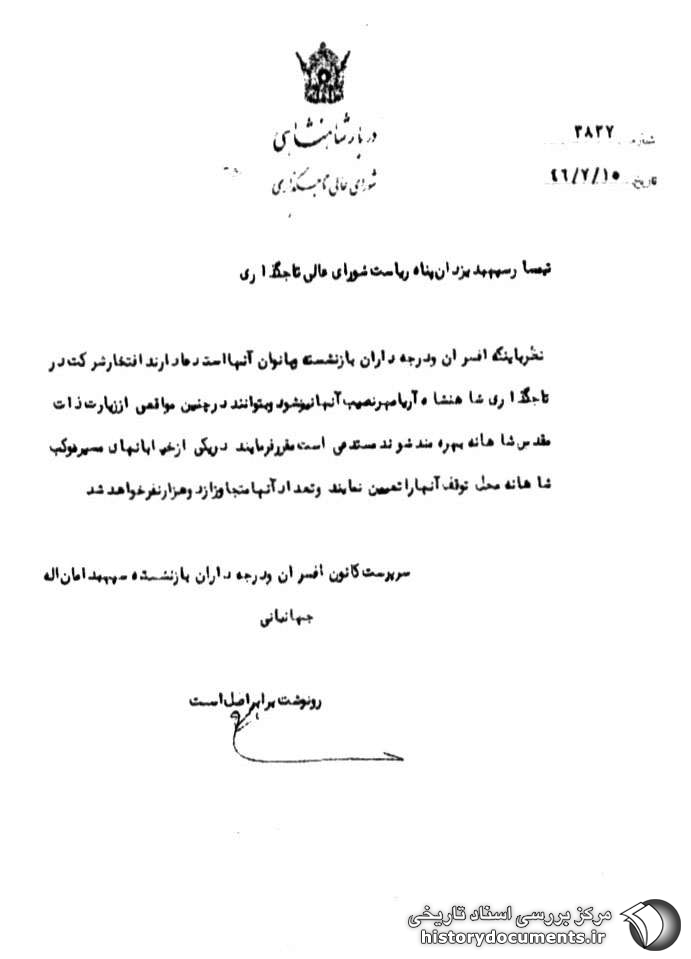 دربار شاهنشاهی
شورای عالی تاجگذاری
شماره ۳۸۲۷
تاریخ ۴۶/۷/۱۰
تیمسار سپهبد یزدان پناه ریاست شورای عالی تاجگذاری
نظر باینکه افسران و درجه داران بازنشسته و بانوان آنها استدعا دارند افتخار شرکت در
تاجگذاری شاهنشاه آریامهر نصیب آنها نیز شود و بتوانند در چنین مواقعی از زیارت ذات
مقدس شاهانه بهره مند شوند مستدعی است مقرر فرمایند در یکی از خیابانهای مسیر موکب
شاهانه محل توقف آنها را تعیین نمایند و تعداد آنها متجاوز از دوهزار نفر خواهد شد
سرپرست کانون افسران و درجه داران بازنشسته سپهبد امان اله
جهانبانی
رونوشت برابر اصل است
مرکز بررسی اسناد تاریخی
historydocuments.ir